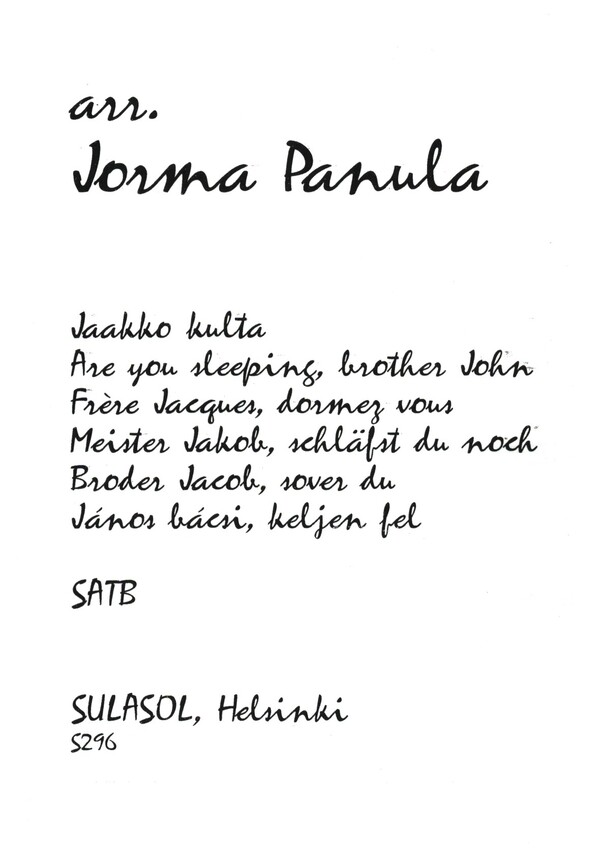 arr.
Jorma Panula
Jaakko kulta
Are you sleeping, brother John
Frère Jacques, dormez vous
Meister Jakob, schläfst du noch
Broder Jacob, sover du
János bácsi, keljen fel
SATB
SULASOL, Helsinki
S296